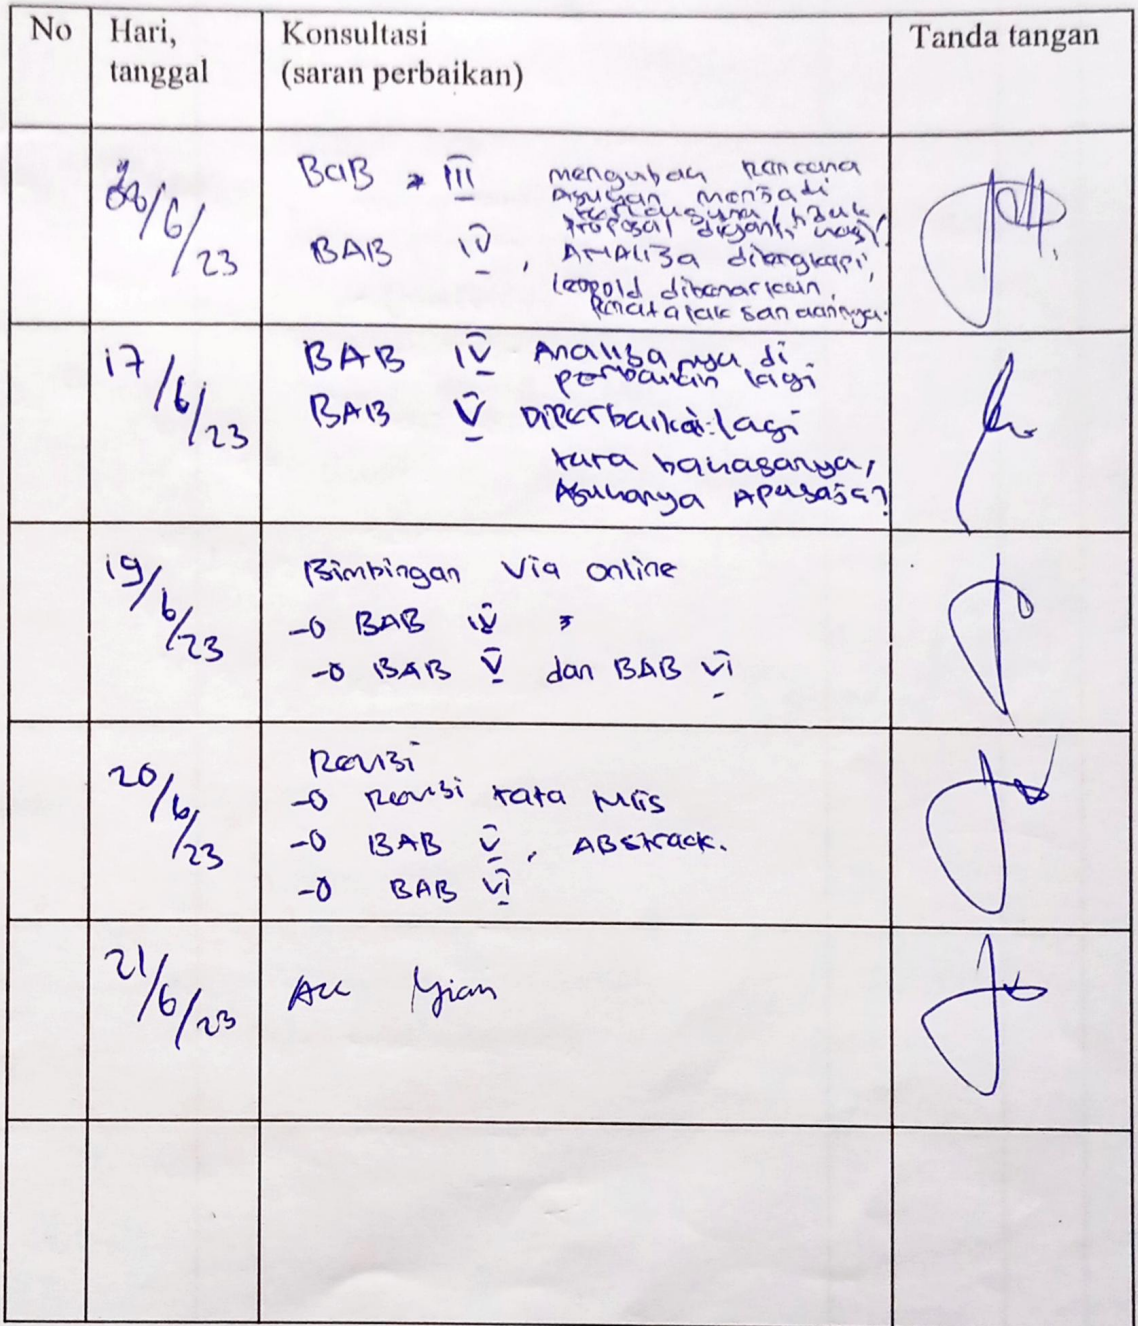 No Hari, tanggal Konsultasi (saran perbaikan) Tanda tangan
/6/23 BAB III mengubah Rancana
Asuhan menjadi
Proposal diganti
BAB IV, ANALISa dilengkapi,
Leopold dibenarkan,
17/6/23 BAB IV Analisanya di
perbaikin lagi
BAB V Diperbaikai lagi
tata bahasanya,
Asuhanya Apasaja?
19/6/23 Bimbingan Via online
-o BAB IV
-o BAB V dan BAB VI
20/6/23 Revisi
-o Revisi tata
-o BAB V, ABstrack.
-o BAB VI
21/6/23 Acc